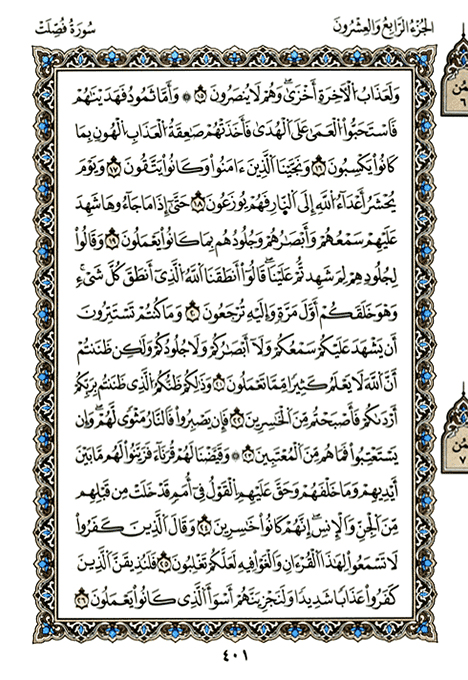 الجُزْءُ الرَّابِعُ وَالعِشْرُونَ
سُورَةُ فُصِّلَتْ
وَلَعَذَابُ الْأَخِرَةِ أَخْزَىٰۖ وَهُمْ لَا يُنصَرُونَ ١٥ ۞ وَأَمَّا ثَمُودُ فَهَدَيْنَٰهُمْ
فَاسْتَحَبُّواْ الْعَمَىٰ عَلَى الْهُدَىٰ فَأَخَذَتْهُمْ صَٰعِقَةُ الْعَذَابِ الْهُونِ بِمَا
كَانُواْ يَكْسِبُونَ ١٦ وَنَجَّيْنَا الَّذِينَ ءَامَنُواْ وَكَانُواْ يَتَّقُونَ ١٧ وَيَوْمَ
يُحْشَرُ أَعْدَآءُ اللَّهِ إِلَى النّ۪ارِ فَهُمْ يُوزَعُونَ ١٨ حَتَّىٰٓ إِذَا مَا جَآءُوهَا شَهِدَ
عَلَيْهِمْ سَمْعُهُمْ وَأَبْصَٰرُهُمْ وَجُلُودُهُم بِمَا كَانُواْ يَعْمَلُونَ ١٩ وَقَالُواْ
لِجُلُودِهِمْ لِمَ شَهِدتُّمْ عَلَيْنَاۖ قَالُوٓاْ أَنطَقَنَا اللَّهُ الَّذِىٓ أَنطَقَ كُلَّ شَىْءٖ
وَهْوَ خَلَقَكُمْ أَوَّلَ مَرَّةٖ وَإِلَيْهِ تُرْجَعُونَ ٢٠ وَمَا كُنتُمْ تَسْتَتِرُونَ
أَن يَشْهَدَ عَلَيْكُمْ سَمْعُكُمْ وَلَآ أَبْصَٰرُكُمْ وَلَا جُلُودُكُمْ وَلَٰكِن ظَنَنتُمْ
أَنَّ اللَّهَ لَا يَعْلَمُ كَثِيرٗا مِّمَّا تَعْمَلُونَ ٢١ وَذَٰلِكُمْ ظَنُّكُمُ الَّذِى ظَنَنتُم بِرَبِّكُمْ
أَرْدَىٰكُمْ فَأَصْبَحْتُم مِّنَ الْخَٰسِرِينَ ٢٢ فَإِن يَصْبِرُواْ فَالنَّارُ مَثْوٗى لَّهُمْۖ وَإِن
يَسْتَعْتِبُواْ فَمَا هُم مِّنَ الْمُعْتَبِينَ ٢٣ ۞ وَقَيَّضْنَا لَهُمْ قُرَنَآءَ فَزَيَّنُواْ لَهُم مَّا بَيْنَ
أَيْدِيهِمْ وَمَا خَلْفَهُمْ وَحَقَّ عَلَيْهِمِ الْقَوْلُ فِىٓ أُمَمٖ قَدْ خَلَتْ مِن قَبْلِهِم
مِّنَ الْجِنِّ وَالْإِنسِۖ إِنَّهُمْ كَانُواْ خَٰسِرِينَ ٢٤ وَقَالَ الَّذِينَ كَفَرُواْ
لَا تَسْمَعُواْ لِهَٰذَا الْقُرْءَانِ وَالْغَوْاْ فِيهِ لَعَلَّكُمْ تَغْلِبُونَ ٢٥ فَلَنُذِيقَنَّ الَّذِينَ
كَفَرُواْ عَذَابٗا شَدِيدٗا وَلَنَجْزِيَنَّهُمْ أَسْوَأَ الَّذِى كَانُواْ يَعْمَلُونَ ٢٦
٤٠١